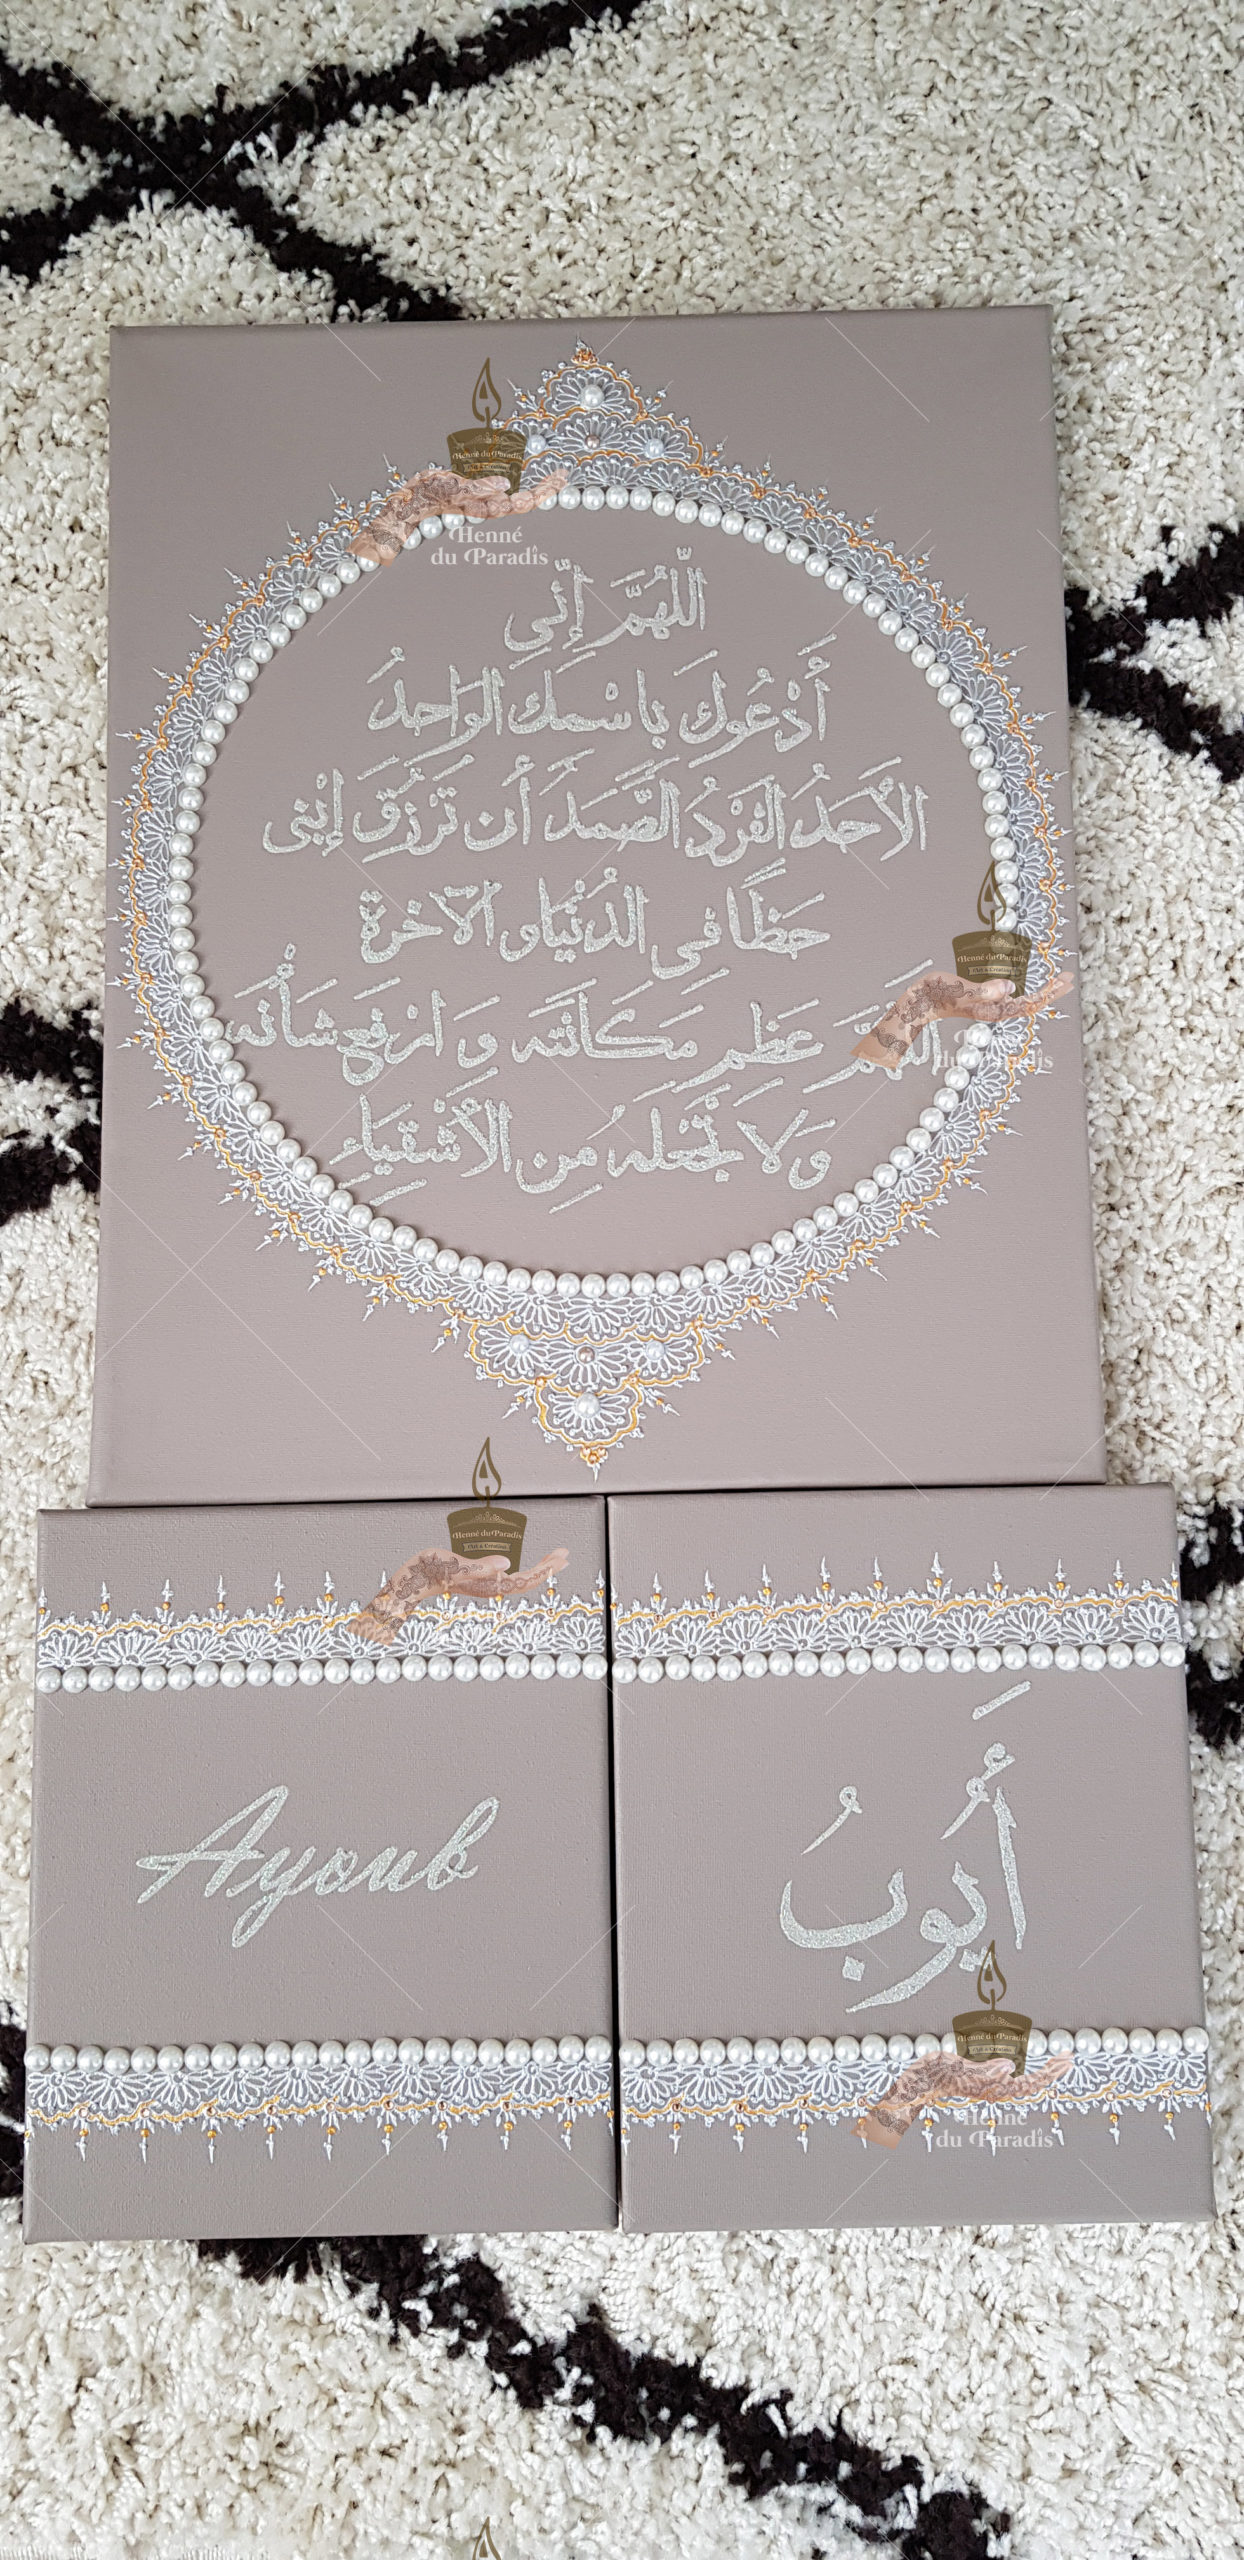 Henné du Paradis
Art & Création
Henné
du Paradis
اللَّهُمَّ إِنِّي
أَدْعُوكَ بِاسْمِكَ الوَاحِدُ
الأَحَدُ الفَرْدُ الصَّمَدَ أَن تَرْزُقَ إِبْنِي
حَظًا فِي الدُنْيَا و الآخرة
اللَّهُمَّ عَظِم مَكَانَتَه وَ ارْفَع شَأْنَه
وَلَا تَجْعَلَه مِن الأَشْقِيَاءِ
Henné du Paradis
Art & Création
Henné
du Paradis
Henné du Paradis
Art & Création
Ayoub
أَيُوبُ
Henné du Paradis
Art & Création
Henné
du Paradis